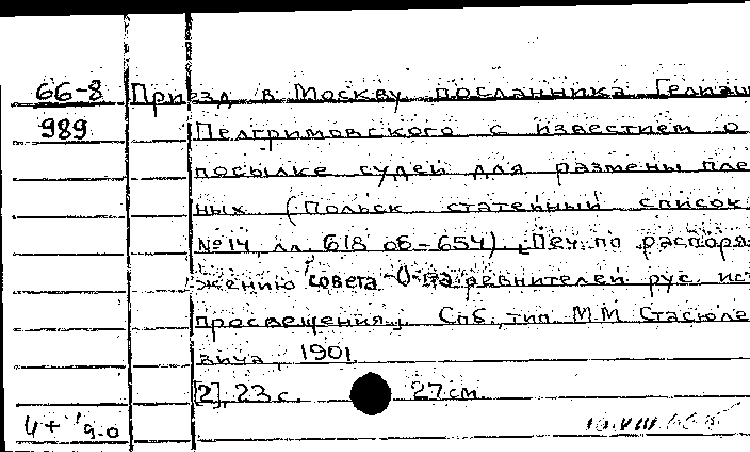 66-8 Приезд в Москву посланника Гелиаш
989 Пелгримовского с известием о
посылке судей для размены пле
ных (Польск статейный список
№ 14, лл. 618 об-654). [Печ. по распоря
жению совета О-ва ревнителей рус. ист.
просвещения]. Спб., тип. М.М. Стасюле
вича, 1901.
[2], 23 с. 27 см.